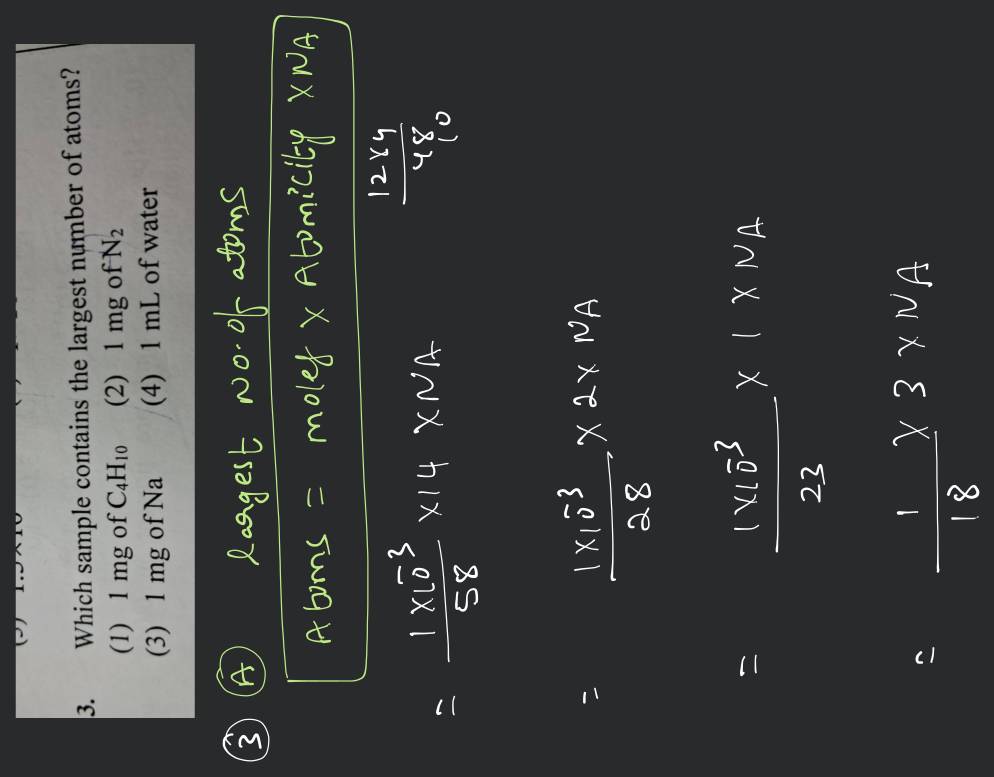 3. Which sample contains the largest number of atoms?
(1) 1 mg of C₄H₁₀ (2) 1 mg of N₂
(3) 1 mg of Na (4) 1 mL of water
③ Ⓐ largest no. of atoms
Atoms = moles × Atomicity × NA
12×4
48
10
= 1×10⁻³/58 ×14 ×NA
= 1×10⁻³/28 × 2 × NA
= 1×10⁻³/23 × 1 × NA
= 1/18 × 3 × NA